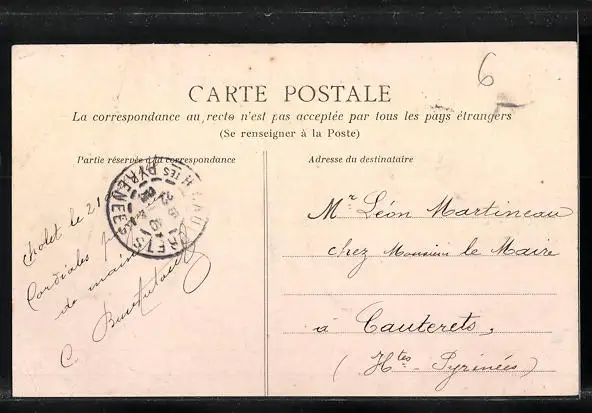 6
CARTE POSTALE
La correspondance au recto n'est pas acceptée par tous les pays étrangers
(Se renseigner à la Poste)
Partie réservée à la correspondance
Adresse du destinataire
CAUTERETS
HTES PYRENEES
Cholet le 21
Cordiales
de main
C.
Mr Léon Martineau
chez Monsieur le Maire
à Cauterets,
(Htes-Pyrénées)